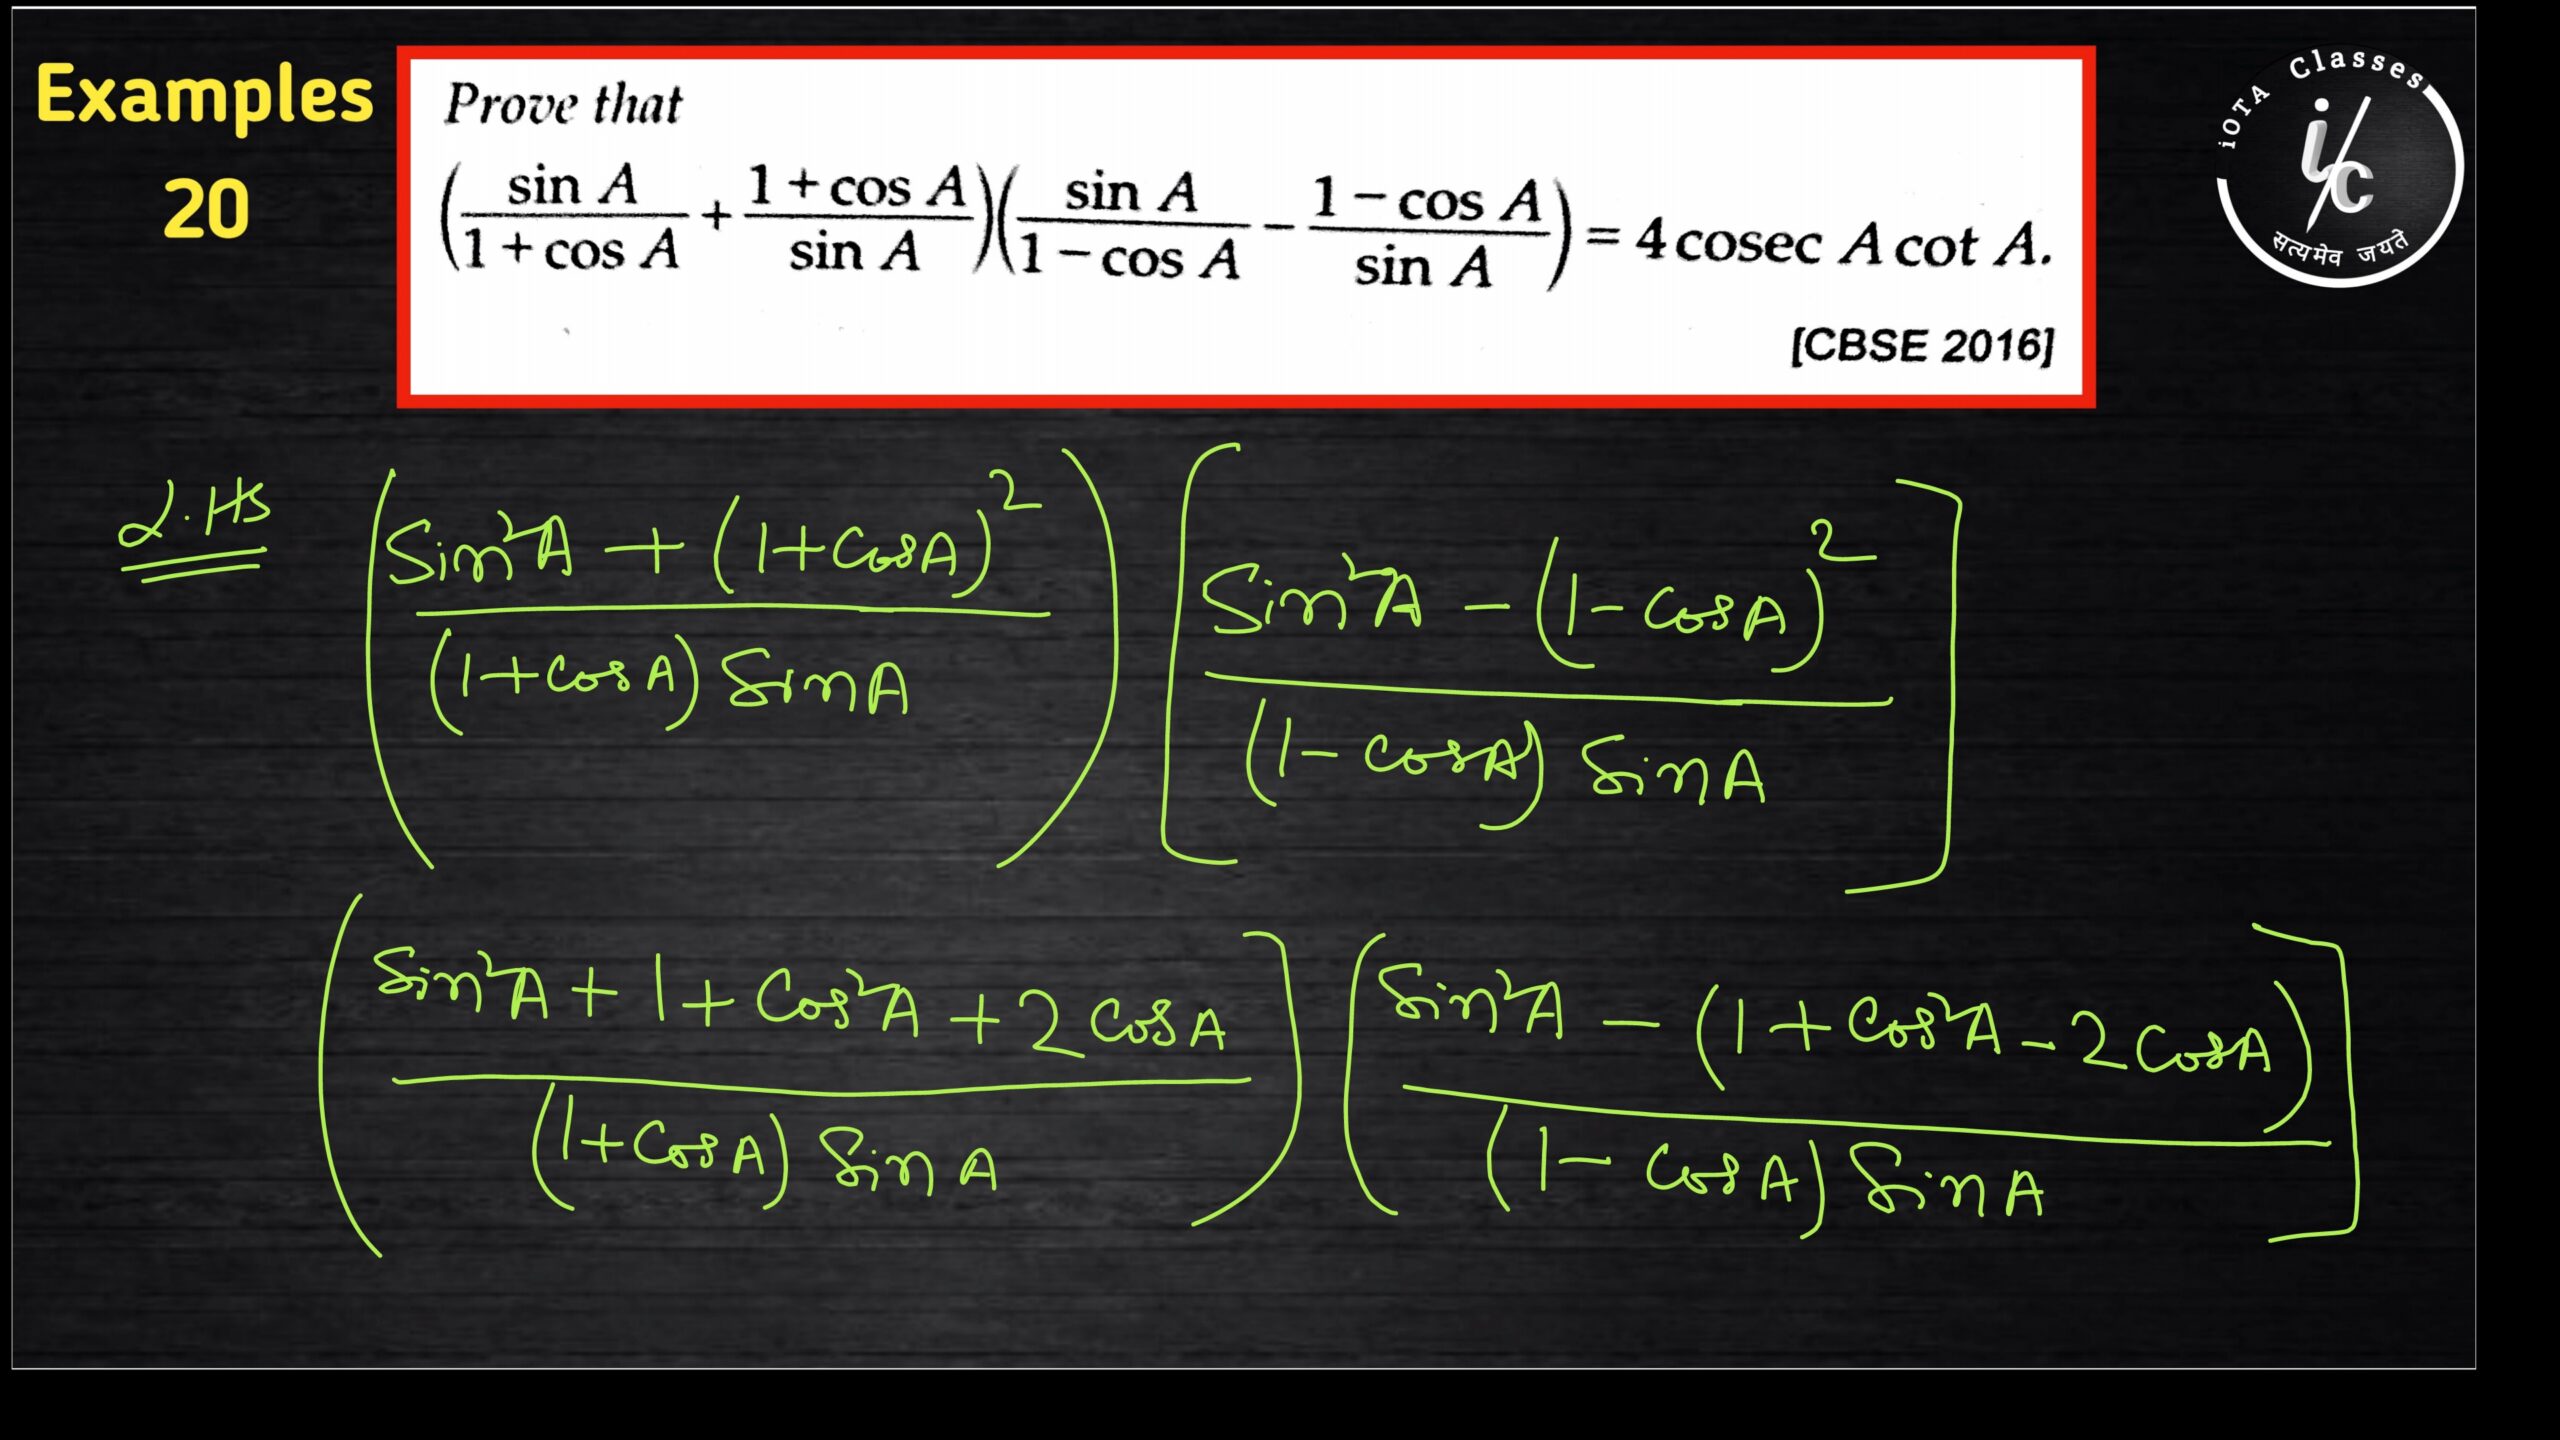 Examples
20
Prove that
(sin A / 1 + cos A + 1 + cos A / sin A)(sin A / 1 − cos A − 1 − cos A / sin A) = 4 cosec A cot A.
[CBSE 2016]
iOTA Classes
i/c
सत्यमेव जयते
L.HS
(Sin²A + (1+CosA)² / (1+CosA) SinA) [Sin²A − (1−CosA)² / (1−CosA) SinA]
(Sin²A + 1 + Cos²A + 2 CosA / (1+CosA) SinA) (Sin²A − (1 + Cos²A − 2 CosA) / (1−CosA) SinA]